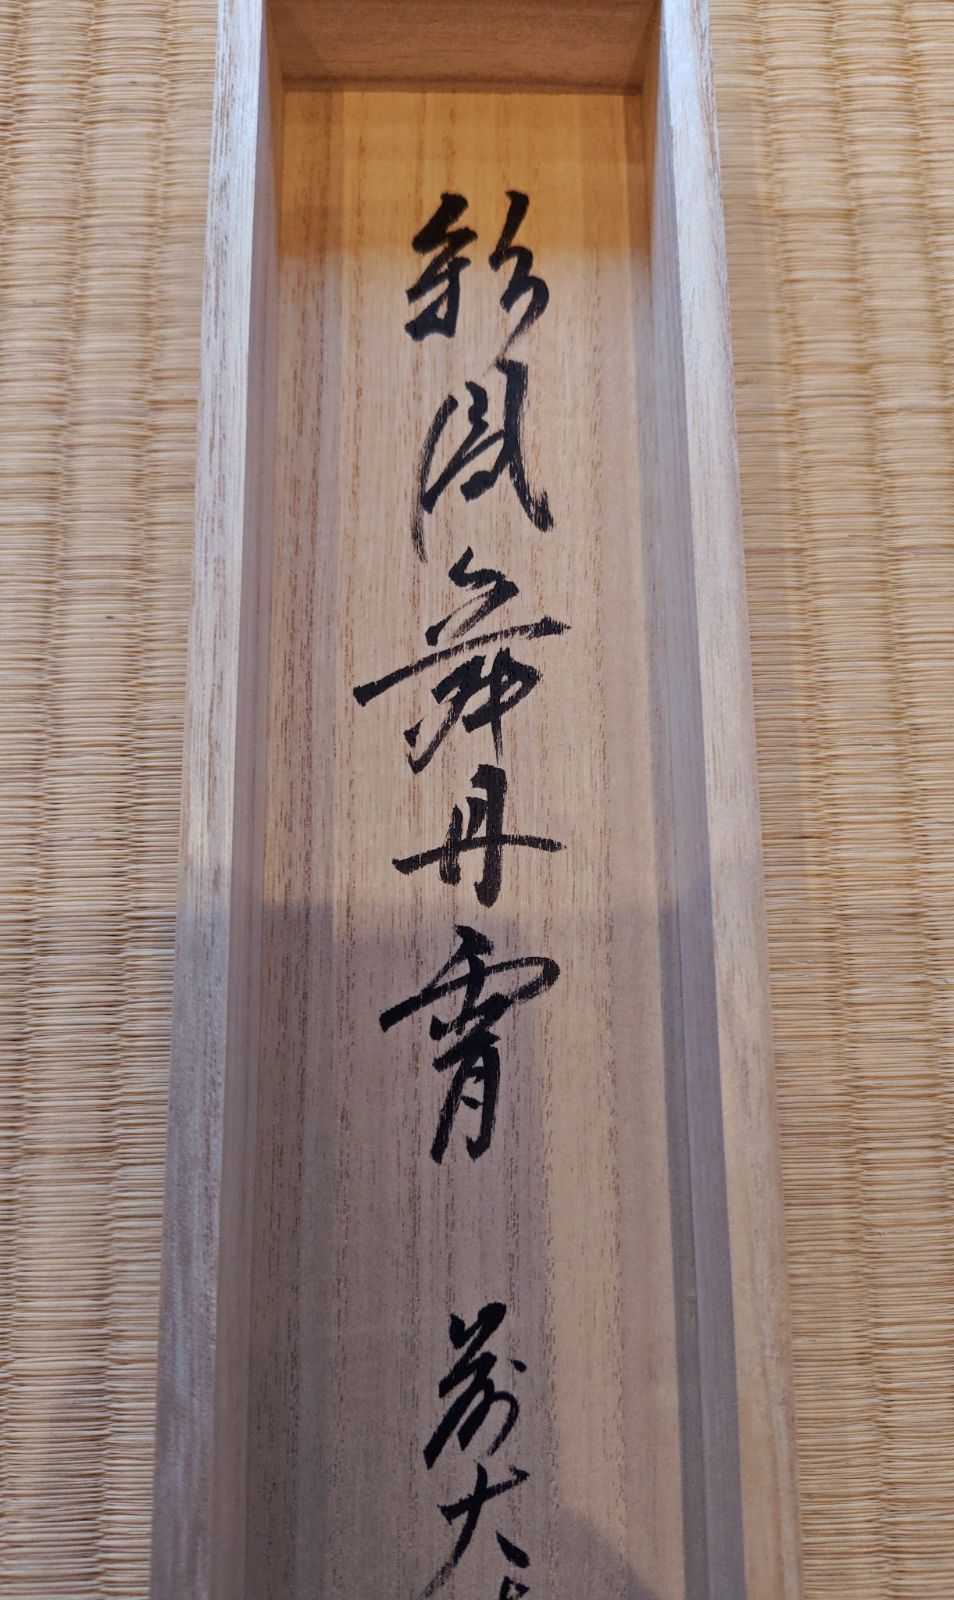 彩鳳舞丹霄 前大